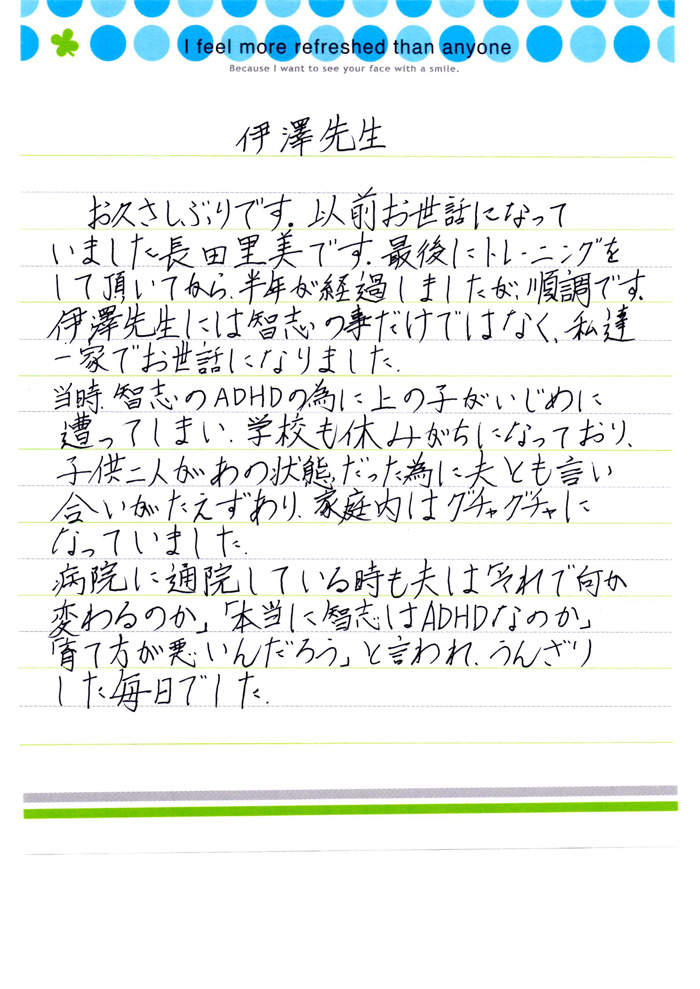 I feel more refreshed than anyone
Because I want to see your face with a smile.
伊澤先生
お久さしぶりです。以前お世話になって
いました長田里美です。最後にトレーニングを
して頂いてから、半年が経過しましたが、順調です。
伊澤先生には智志の事だけではなく、私達
一家でお世話になりました。
当時、智志のADHDの為に上の子がいじめに
遭ってしまい、学校も休みがちになっており、
子供二人があの状態だった為に夫とも言い
合いがたえずあり、家庭内はグチャグチャに
なっていました。
病院に通院している時も夫は「それで何か
変わるのか」「本当に智志はADHDなのか」
「育て方が悪いんだろう」と言われ、うんざり
した毎日でした。